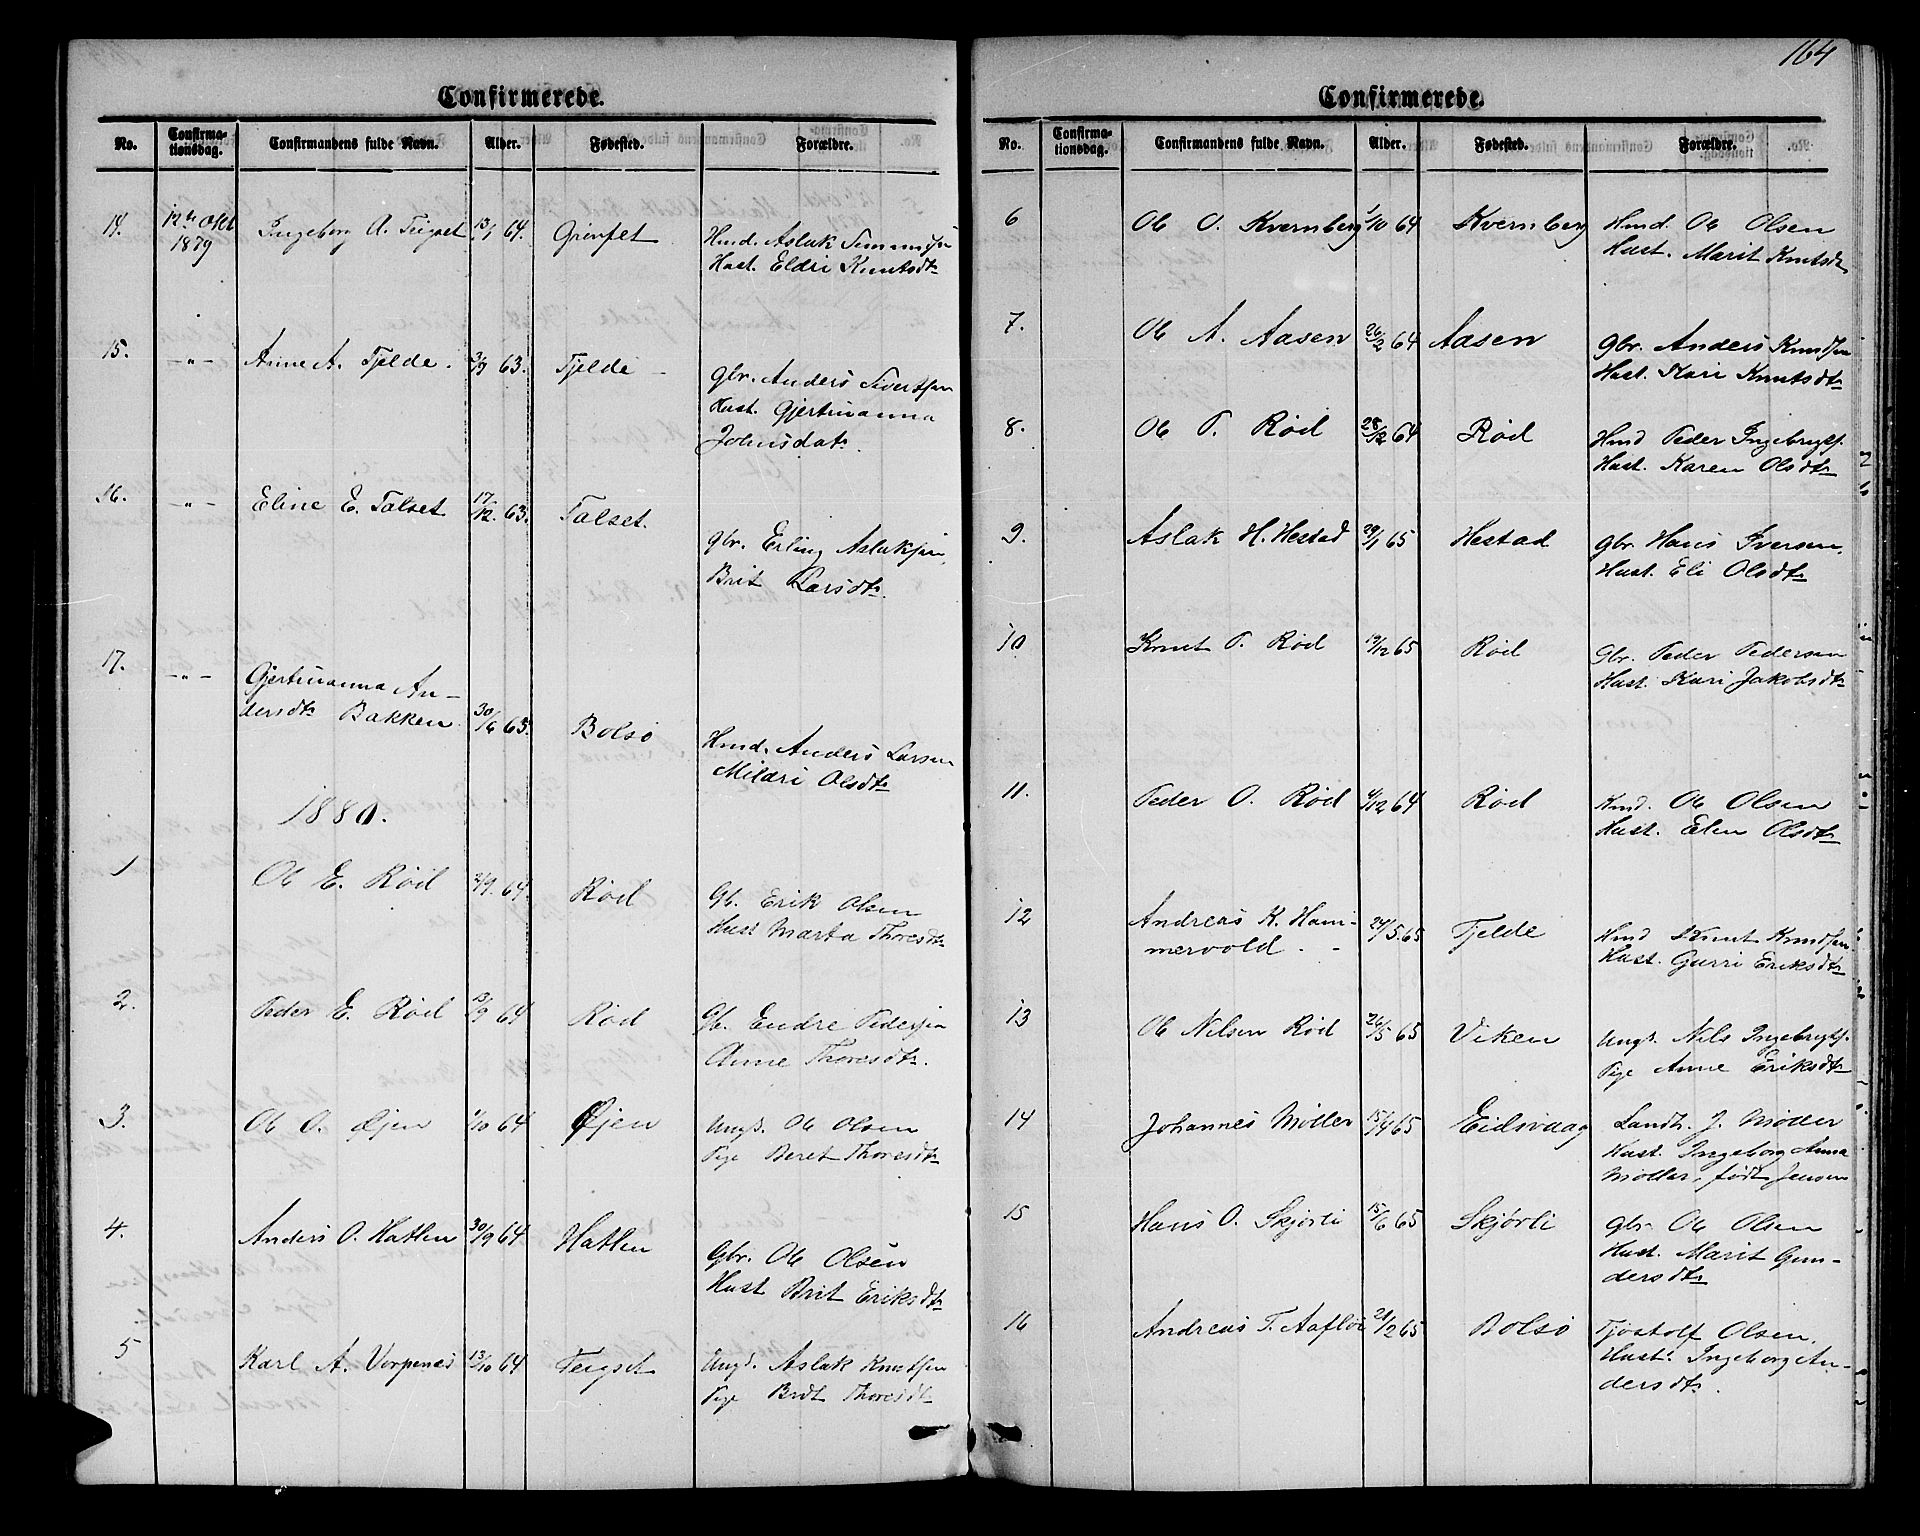 Confirmerede.
No. Confirma-tionsdag. Confirmandens fulde Navn. Alder. Fødested. Forældre.
14. 12te Okt 1879 Ingeborg A. Teigset 13/1 64.
Hmd. Aslak
Hust. Eldri Knutsdtr
15. -"- Anne A. Fjelde. 63. Fjelde
gbr. Anders Sivertsen
Hust. Gjertruanna
Johnsdatr.
16. -"- Eline E. Talset 17/12. 63. Talset.
gbr. Erling Aslaksen,
Brit Larsdtr.
17. -"- Gjertruanna An-
dersdtr Bakken. 30/6 63. Bolsø
Hmd. Anders Larsen
Mildri Olsdtr
1880.
1 Ole E. Røid 2/9. 64. Rød
Gb. Erik Olsen
Hust Marta Thoresdtr
2. Peder E. Rød 13/9 64 Rød
Gb. Endre Pedersen
Anne Thoresdtr.
3. Ole O. Øjen 1/10 64 Øjen
Ungk. Ole Olsen
Pige Beret Thoresdtr
4. Anders O. Hatlen 30/9 64 Hatlen
Gbr. Ole Olsen
Hust Brit Eriksdtr
5 Karl A. Vorpenes 13/10 64 Teigset
Ungk. Aslak Knutsen
Pige Brit Thoresdtr
164
Confirmerede.
No. Confirma-tionsdag. Confirmandens fulde Navn. Alder. Fødested. Forældre.
6 Ole O. Kvernberg 1/10 64 Kvernberg
Hmd. Ole Olsen
Hust. Marit Knutsdtr
7. Ole A. Aasen 26/12 64 Aasen
gbr. Anders Knudsen
Hust. Kari Knutsdtr
8. Ole P. Rød 28/12 64 Rød
Hmd Peder Ingebrigts.
Hust. Karen Olsdtr
9. Aslak H. Hestad 29/1 65 Hestad
gbr Hans Iversen.
Hust. Eli Olsdtr
10 Knut P. Rød 19/12 65 Rød
Gbr. Peder Pedersen
Hust. Kari Jakobsdtr
11. Peder O. Rød 4/12 64 Rød
Hmd. Ole Olsen
Hust. Elen Olsdtr
12 Andreas K. Ham-
mervold 24/5. 65 Fjelde
Hmd Knut Knudsen
Hust. Gurri Eriksdtr
13 Ole Nilsen Rød 26/5 65 Viken
Ungk. Nils Ingebrigts.
Pige Anne Eriksdtr
14 Johannes Møller 15/4 65 Eidsvaag
Landh. J. Møller
Hust. Ingeborg Anna
Møller, født Jensen
15 Hans O. Skjørli 15/6 65 Skjørli
gbr. Ole Olsen
Hust. Marit Gun-
dersdtr
16 Andreas T. Aafløi 21/2 65 Bolsø
Tjøstolf Olsen.
Hust. Ingeborg An-
dersdtr.